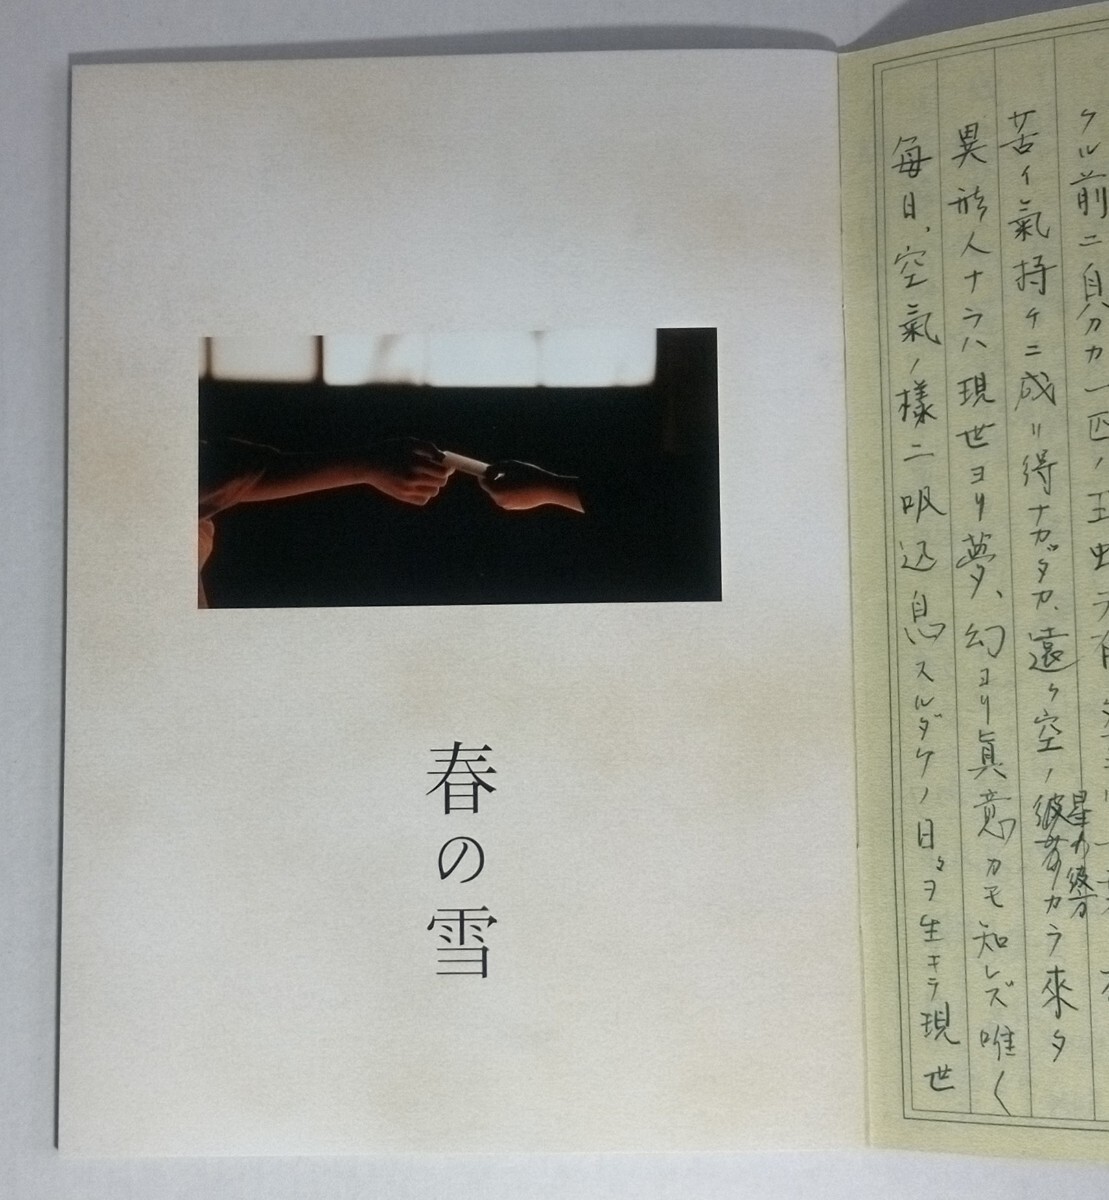 春の雪
クル前ニ自分カ一匹ノ玉虫
苦イ氣持ケニ成リ得ナガダカ、遠ク空ノ彼方カラ來タ
星カ彼方
異形人ナラハ現世ヨリ夢、幻ヨリ眞意カモ知レズ唯く
毎日、空氣ノ様ニ吸込息スルダケノ日々ヲ生キラ現世